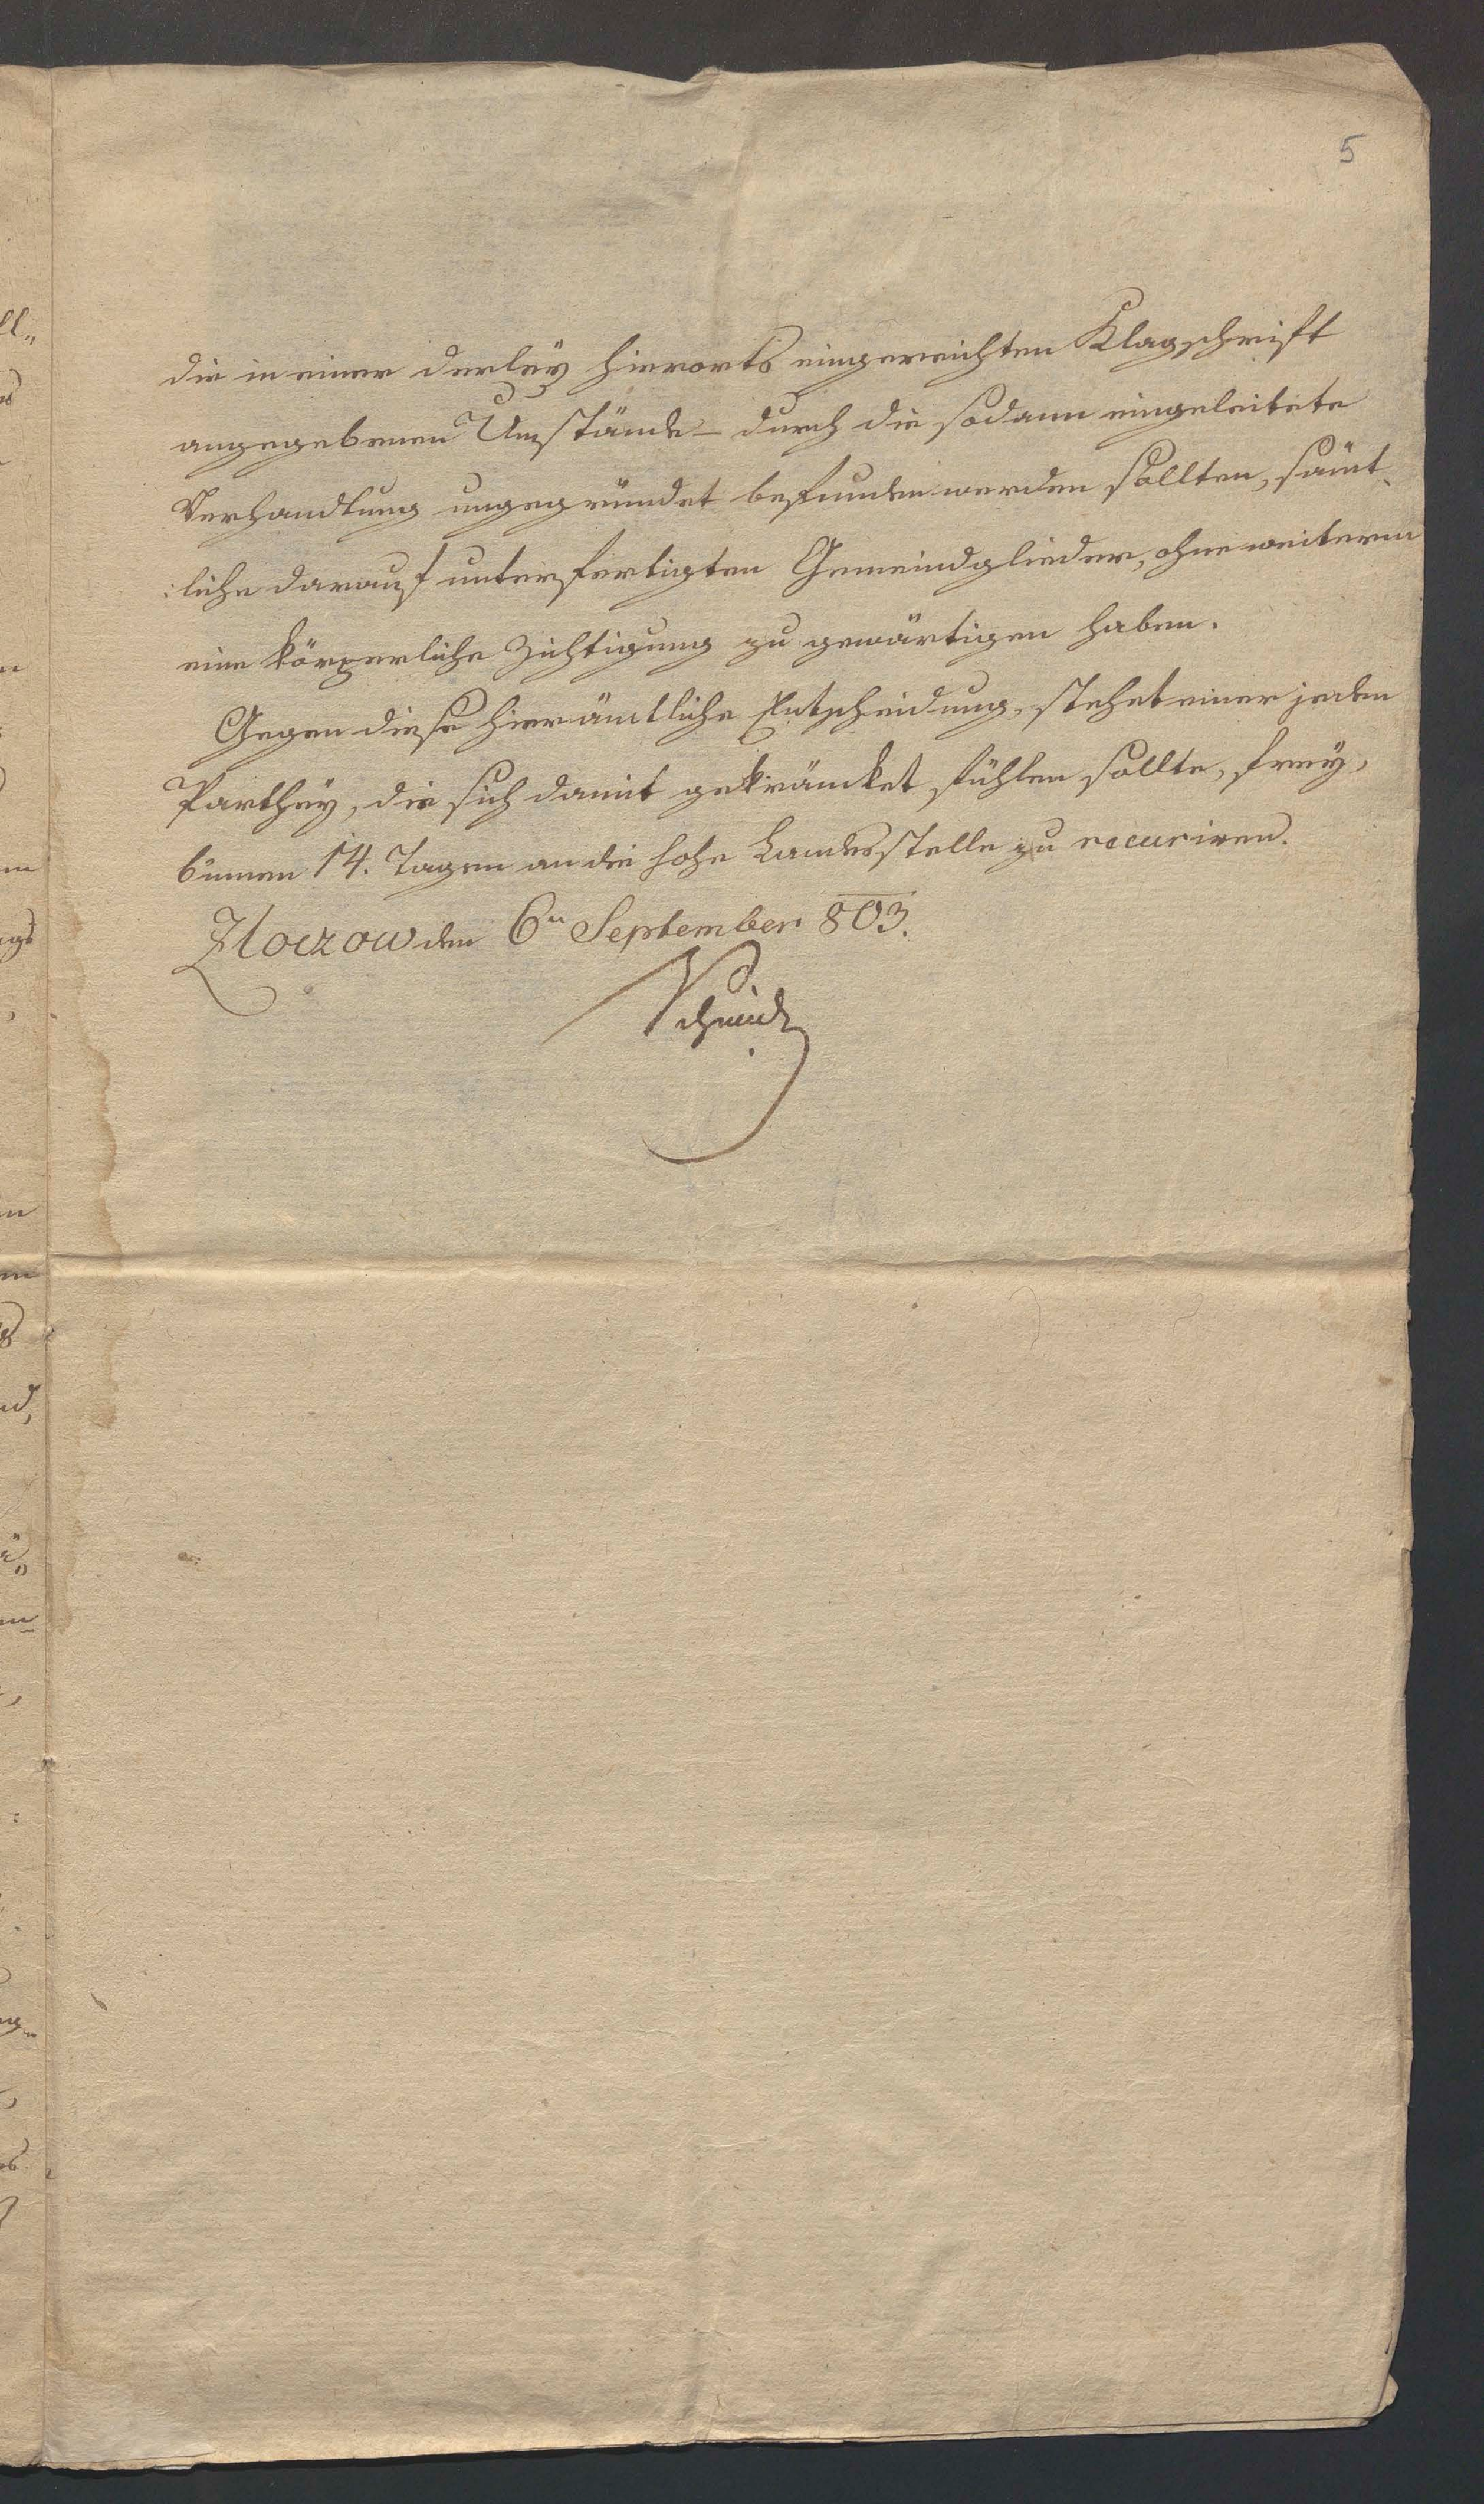 5
die in einer derleÿ hierorts eingereichten Klagschrift
angegebenen Umstände – durch die sodann eingeleitete
Verhandlung ungegründet befunden werden sollten, sämt-
:liche darauf unterfertigten Gemeindglieder, ohne weiterm
eine körperliche Züchtigung zu gewärtigen haben.
Gegen diese hierämtliche Entscheidung, stehet einer jeden
Parthey, die sich damit gekräncket fühlen sollte, freÿ,
binnen 14. Tagen an die hohe Landesstelle zu recuriren.
Zloczow den 6n September 803.
Schmidt